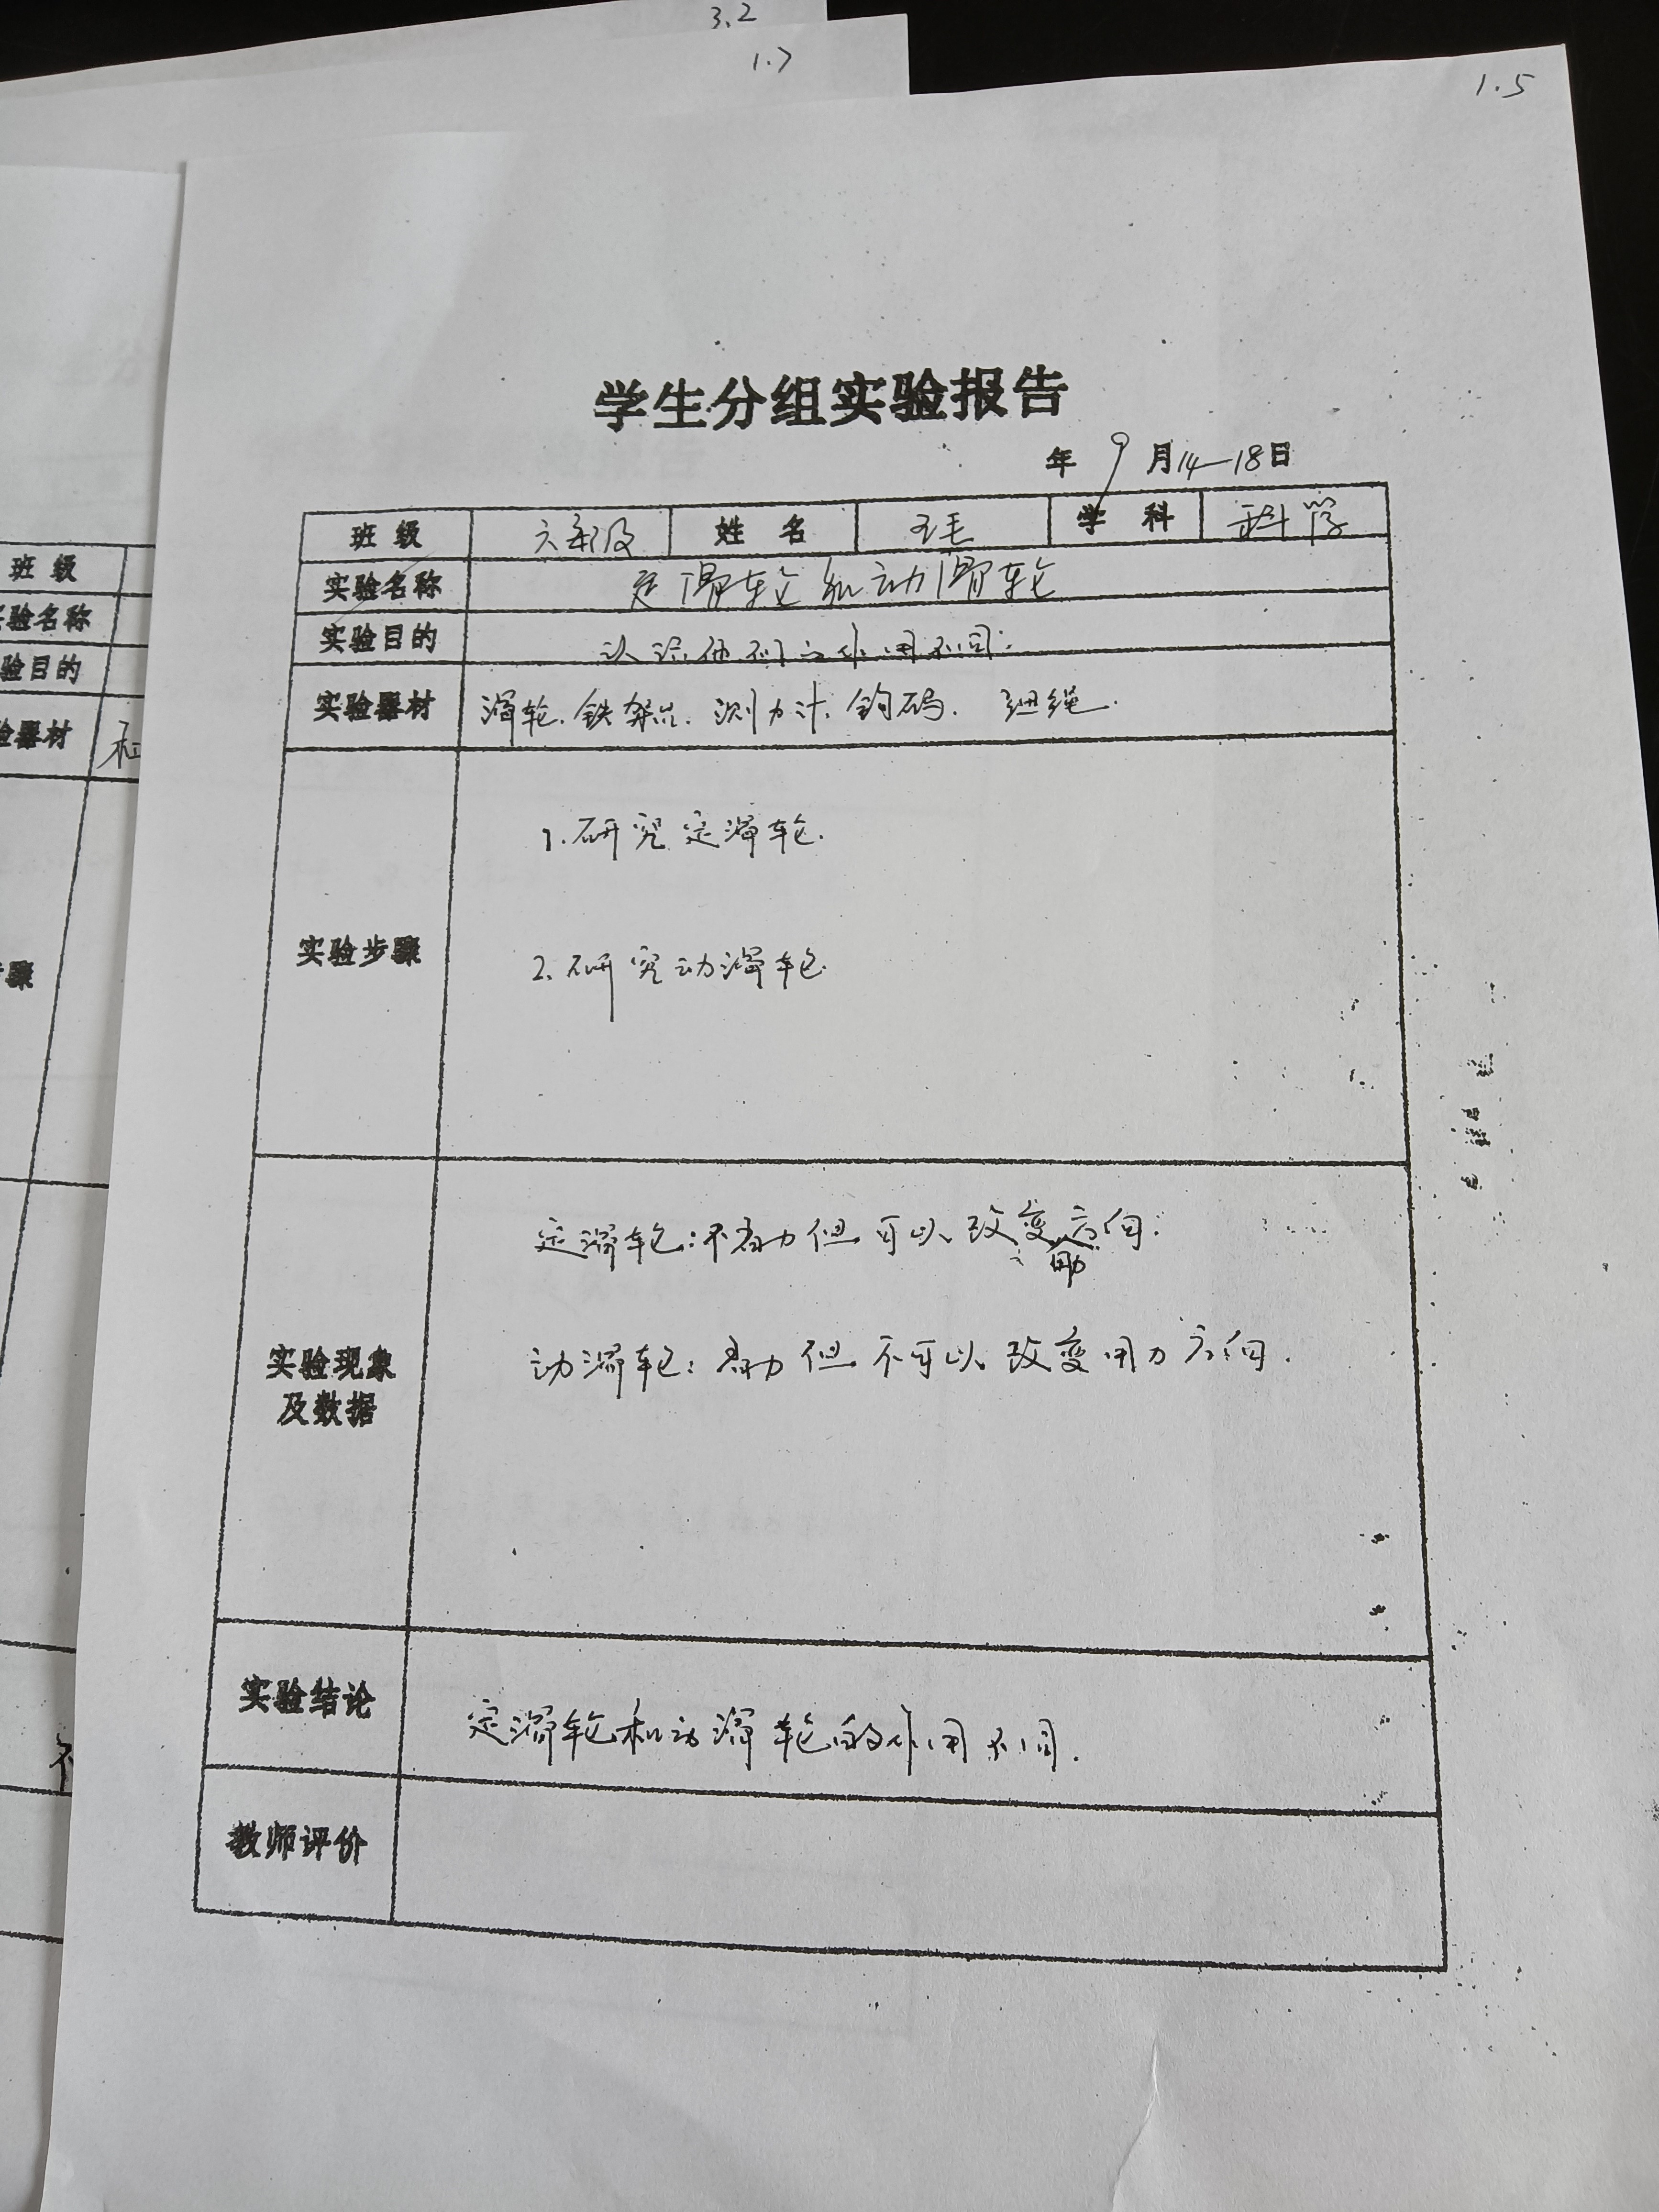 3.2
1.7
1.5
学生分组实验报告
年 9 月 14—18日
班 级 六年级 姓 名 王毛 学 科 科学
实验名称 定滑轮和动滑轮
实验目的 认识他们的作用不同.
实验器材 滑轮. 铁架台. 测力计. 钩码. 细绳.
实验步骤
1.研究定滑轮.
2.研究动滑轮.
实验现象
及数据
定滑轮:不省力但可以改变用力方向.
动滑轮:省力但不可以改变用力方向.
实验结论 定滑轮和动滑轮的作用不同.
教师评价
班 级
验名称
验目的
验器材 和
骤
不